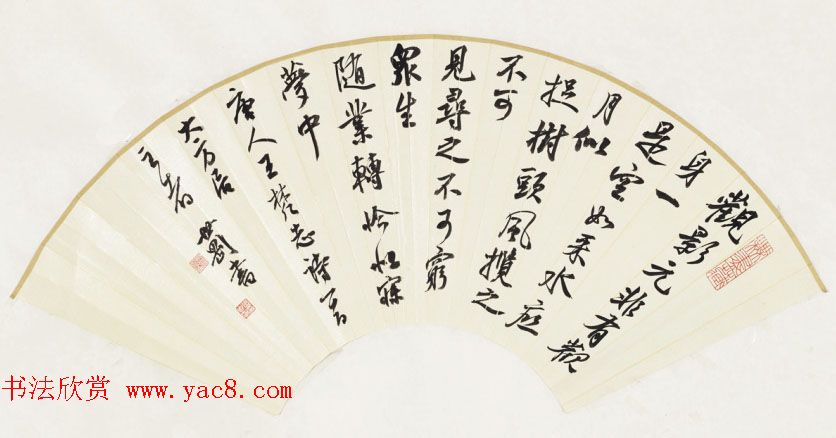 觀影元非有觀
身一
是空如采水底
月似
捉樹頭風攬之
不可
見尋之不可窮
眾生
隨業轉恰似寐
夢中
唐人王梵志詩一首
大方居
世剛書
书法欣赏 www.yac8.com